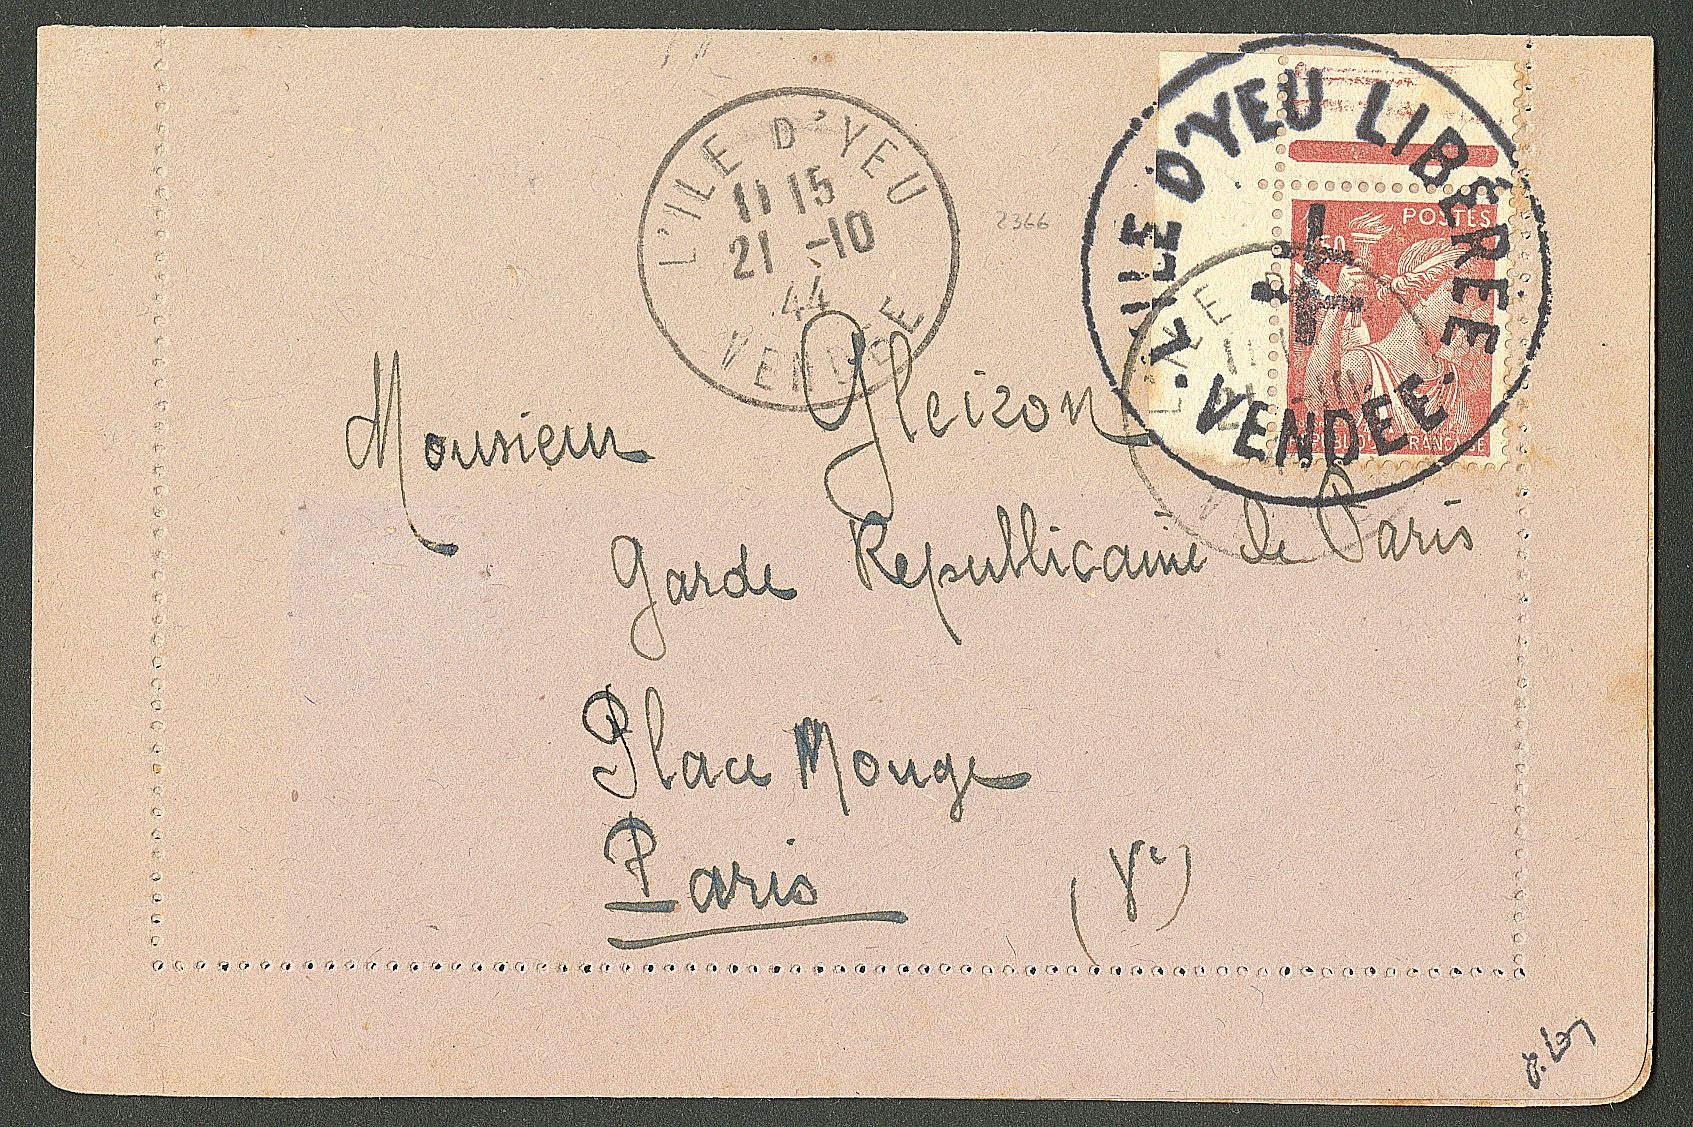 L'ILE D'YEU
11 15
21 -10
44
VENDÉE
2366
.V. ILE D'YEU LIBÉRÉE.
VENDEE
POSTES
50
FRANÇAISE
Monsieur Gleizon
Garde Republicaine de Paris
Place Monge
Paris (Ve)